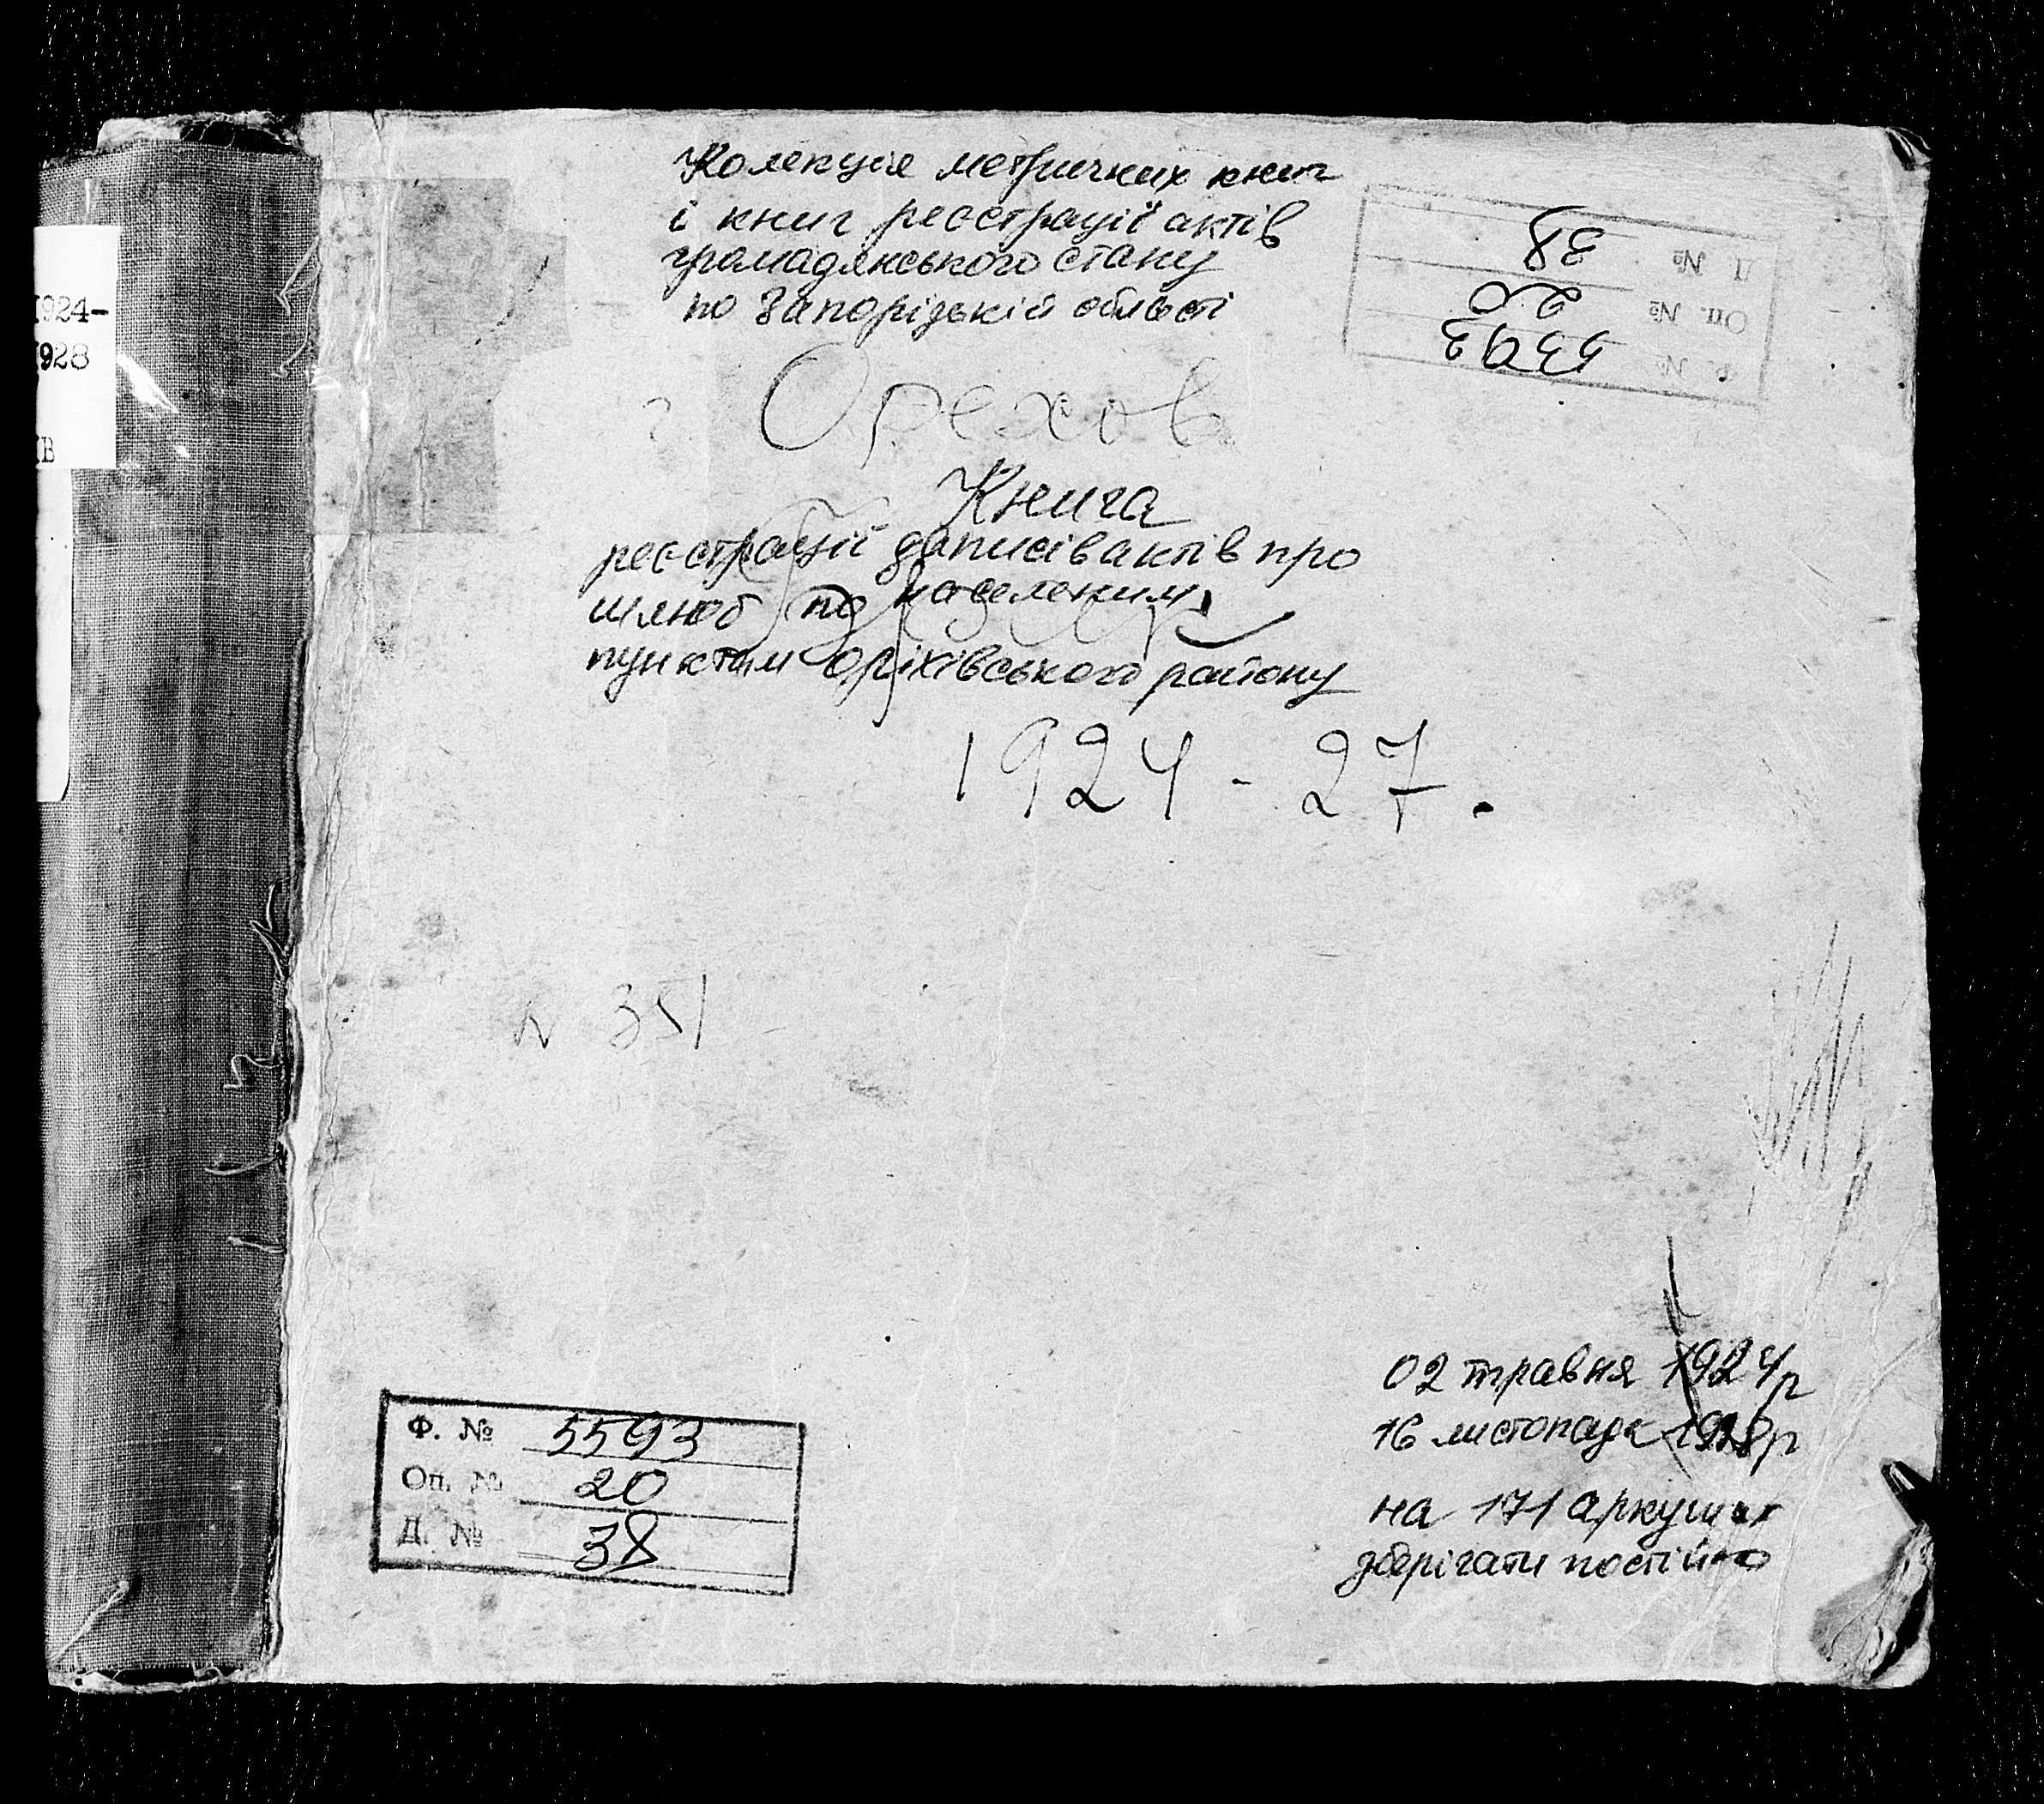 1924-
1928
ІВ
Колекція метричних книг
і книг реєстрації актів
громадянського стану
по Запорізькій області
Д. № 38
Оп. № 20
Ф. № 5593
г. Орехов
Книга
реєстрації записів актів про
шлюб по населеним
пунктам Оріхівського району
1924-27.
N 351
02 травня 1924р
16 листопада 1928р
на 171 аркушах
зберігати постійно
Ф. № 5593
Оп. № 20
Д. № 38